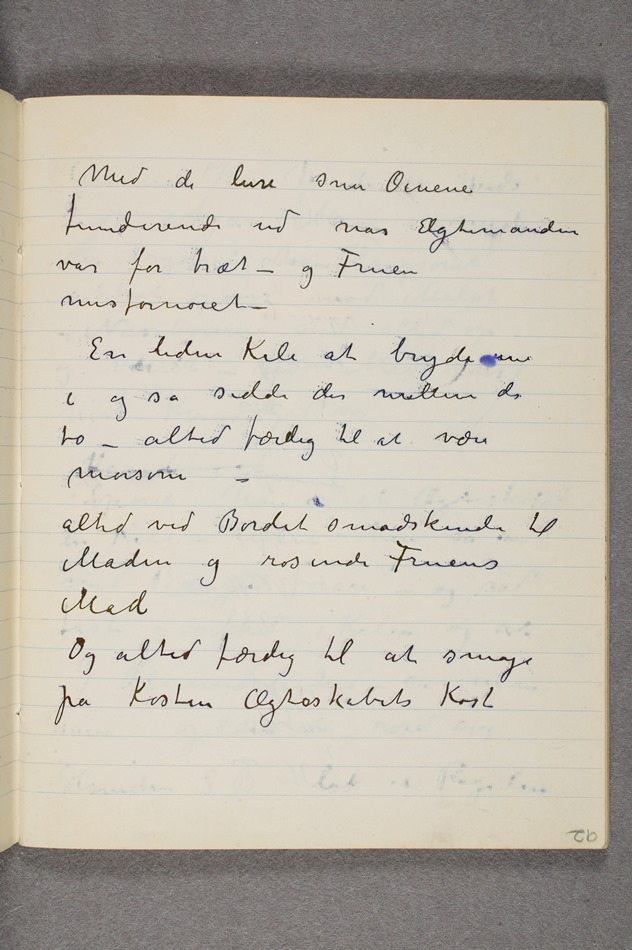 Med de lure smu Öinene
funderende ud nar Elgtemanden
var for træt – og Fruen
misfornöiet –
En liden Kile at bryde
i og sa sidde der mellem de
to – altid færdig til at være
morsom –
altid ved Bordet smadskende til
Maden og rosende Fruens
Mad
Og altid færdig til at smage
pa Kosten Ægteskabets Kost